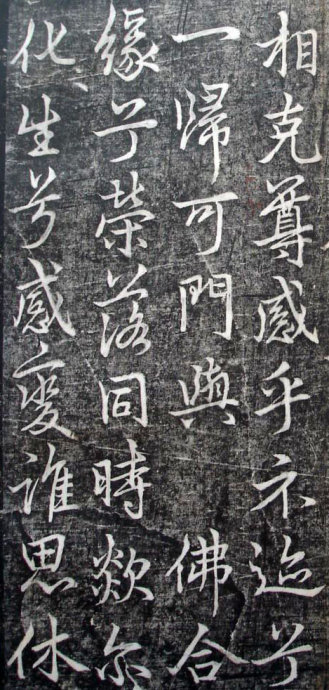 相克尊感乎示迹兮
一歸可門與佛合
緣兮榮落同時欻尒
化生兮感變誰思休